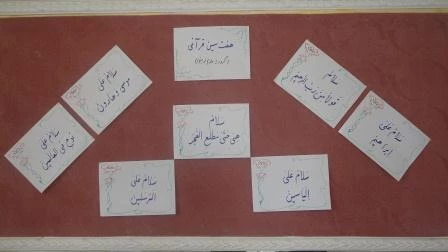 هفت سین قرآنی
سلام
قولا من رب رحیم
سلام علی
ابراهیم
سلام علی
موسی و هارون
سلام علی
نوح فی العالمین
سلام
هی حتی مطلع الفجر
سلام علی
المرسلین
سلام علی
الیاسین